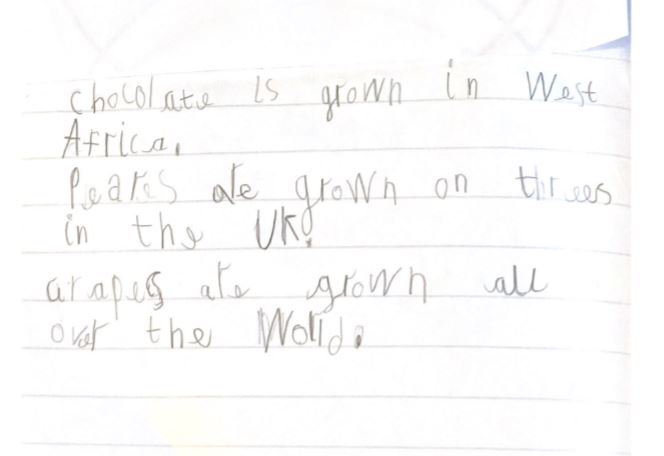 Chocolate is grown in West
Africa.
Peares are grown on threes
in the UK!
arapes are grown all
over the World.